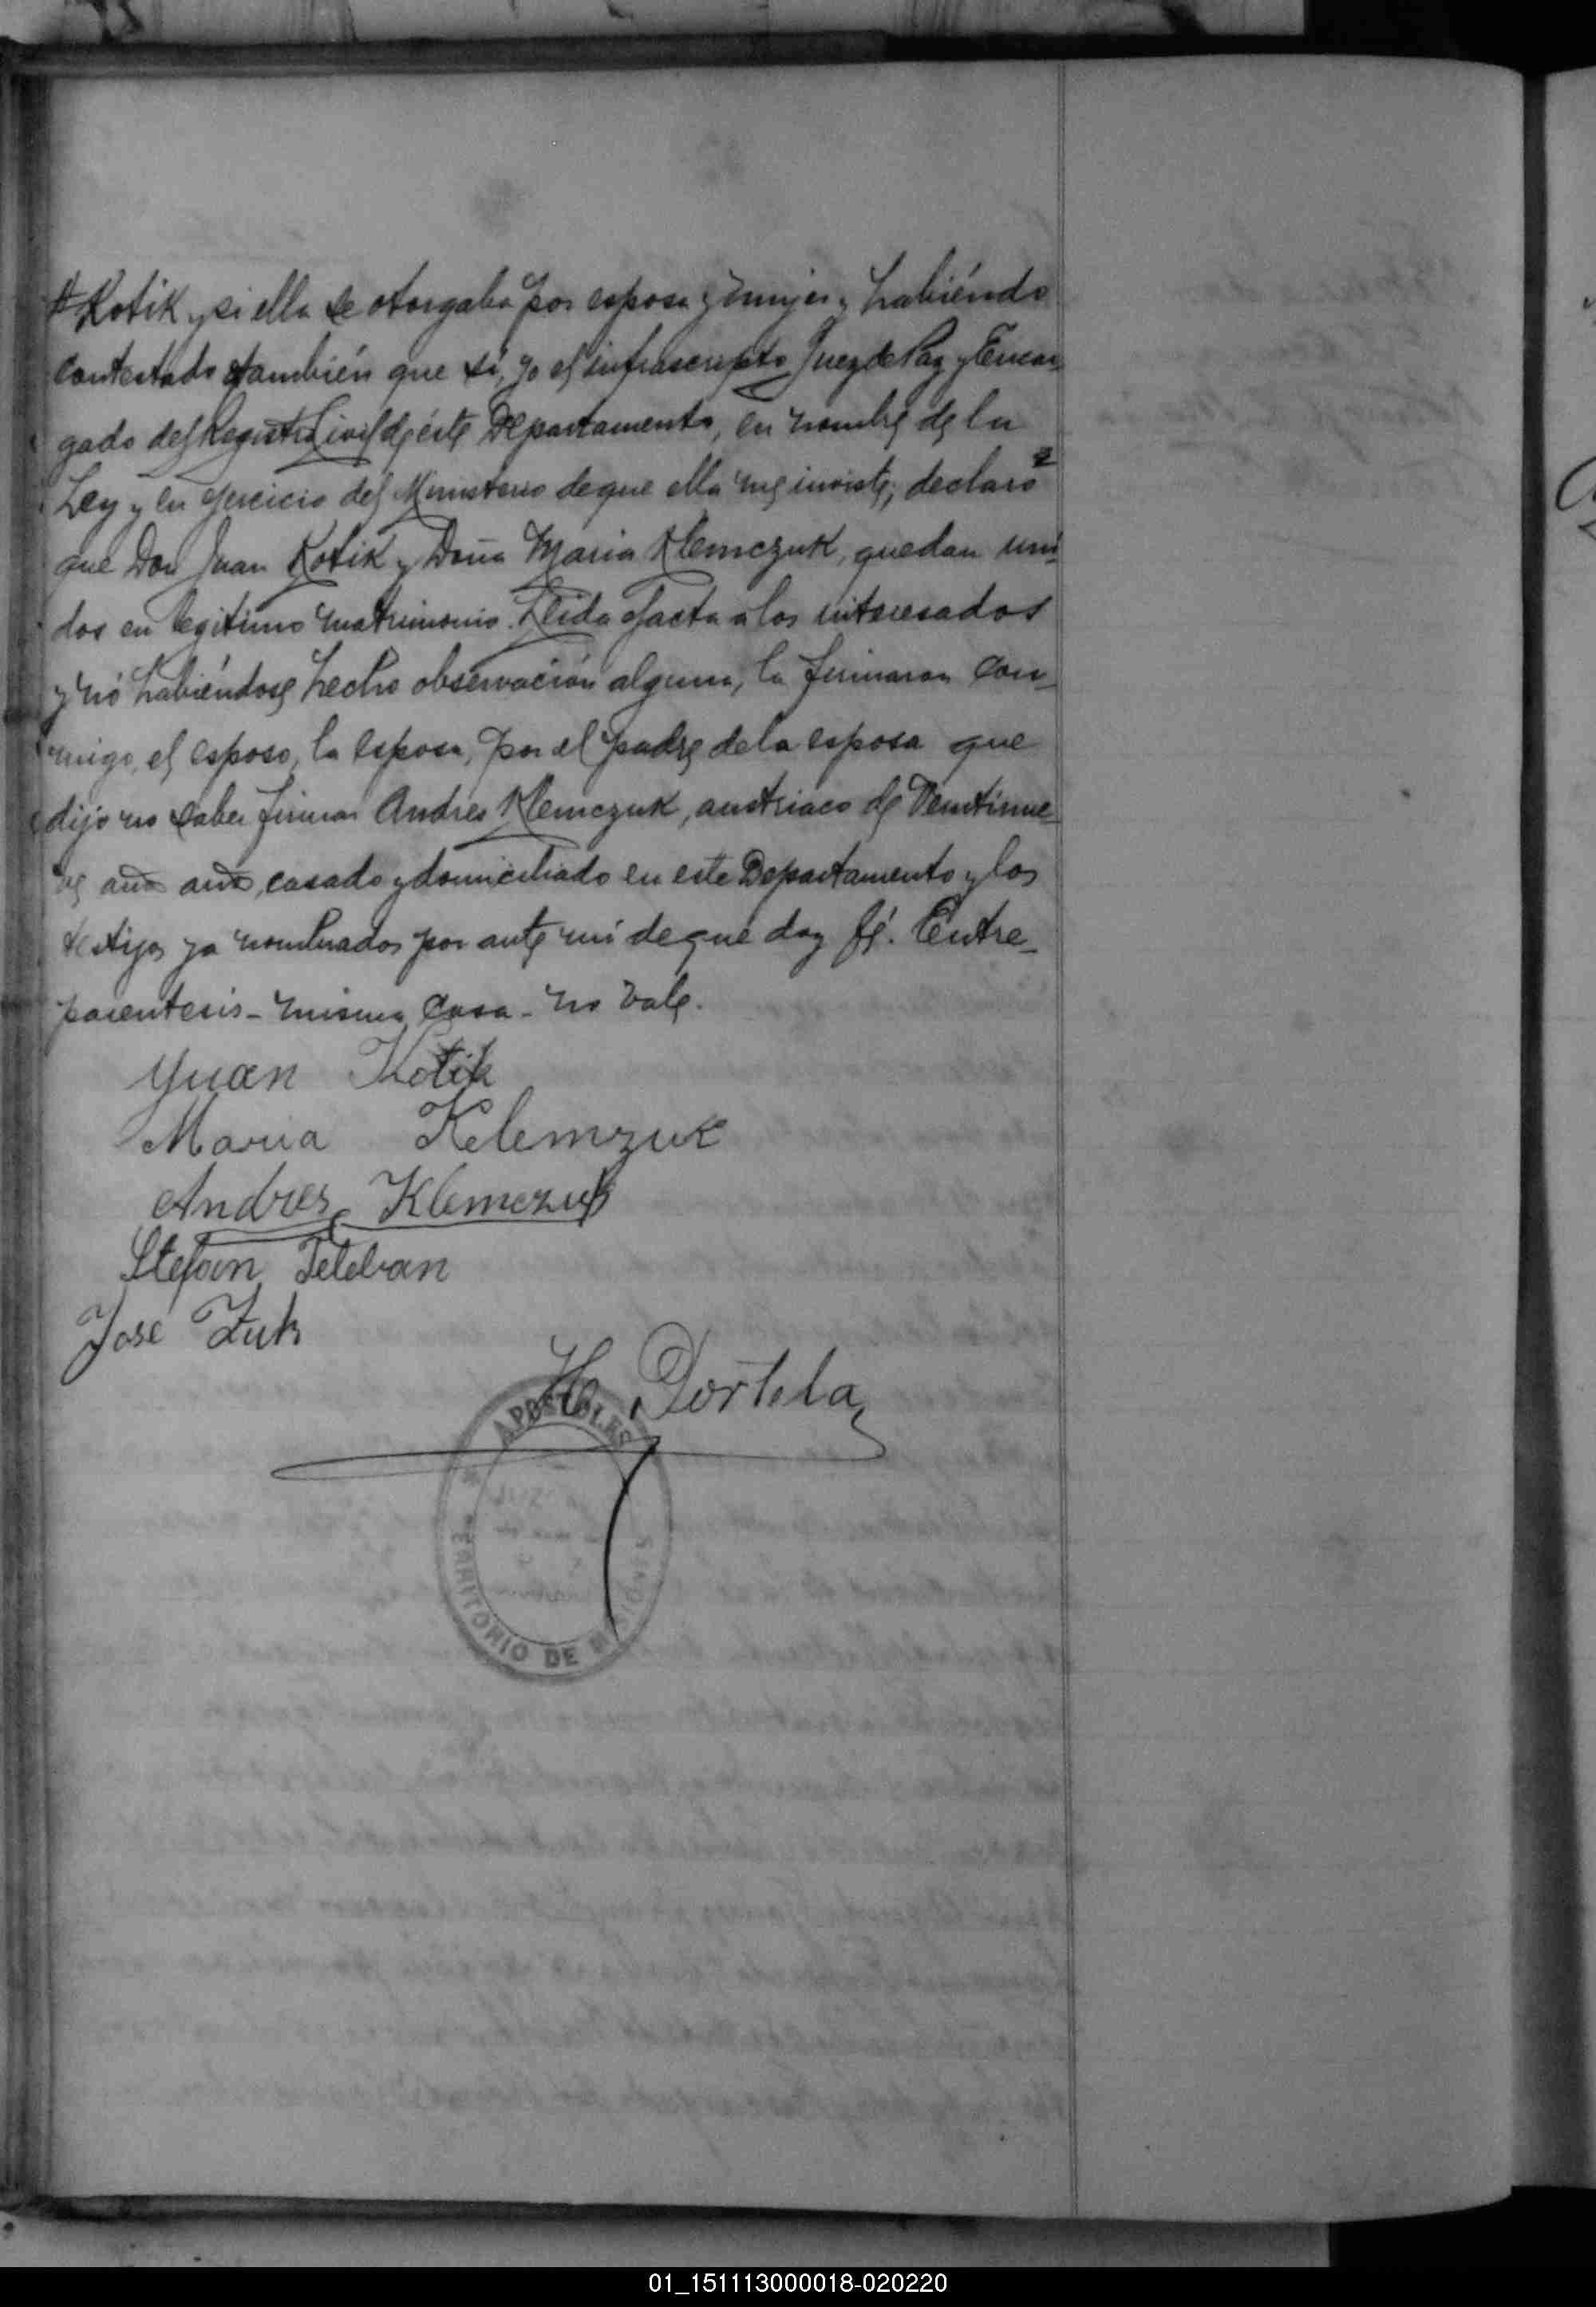 Kotik, y si ella se otorgaba por esposa y mujer y habiéndo
contestado también que sí, yo el infrascripto Juez de Paz y Encar-
gado del Registro Civil de éste Departamento, en nombre de la
Ley y en ejercicio del Ministerio de que ella me inviste, declaro
que Don Juan Kotik y Doña Maria Klemczuk, quedan uni-
dos en legitimo matrimonio. Leida el acta a los interesados
y nó habiéndose hecho observación alguna, la firmaron con-
migo, el esposo, la esposa, por el padre de la esposa que
dijo no saber firmar Andres Klemczuk, austriaco de Veintinue-
ve años, casado y domiciliado en este Departamento y los
testigos ya nombrados por ante mí de que doy fé. Entre-
parentesis - misma casa - no vale.
Yuan Kotik
Maria Kelemzuk
Andres Klemczuk
Stefan Teleban
José Zuk
H. Portela
APOSTOLES
JUZ
TERRITORIO DE MISIONES
01_151113000018-020220